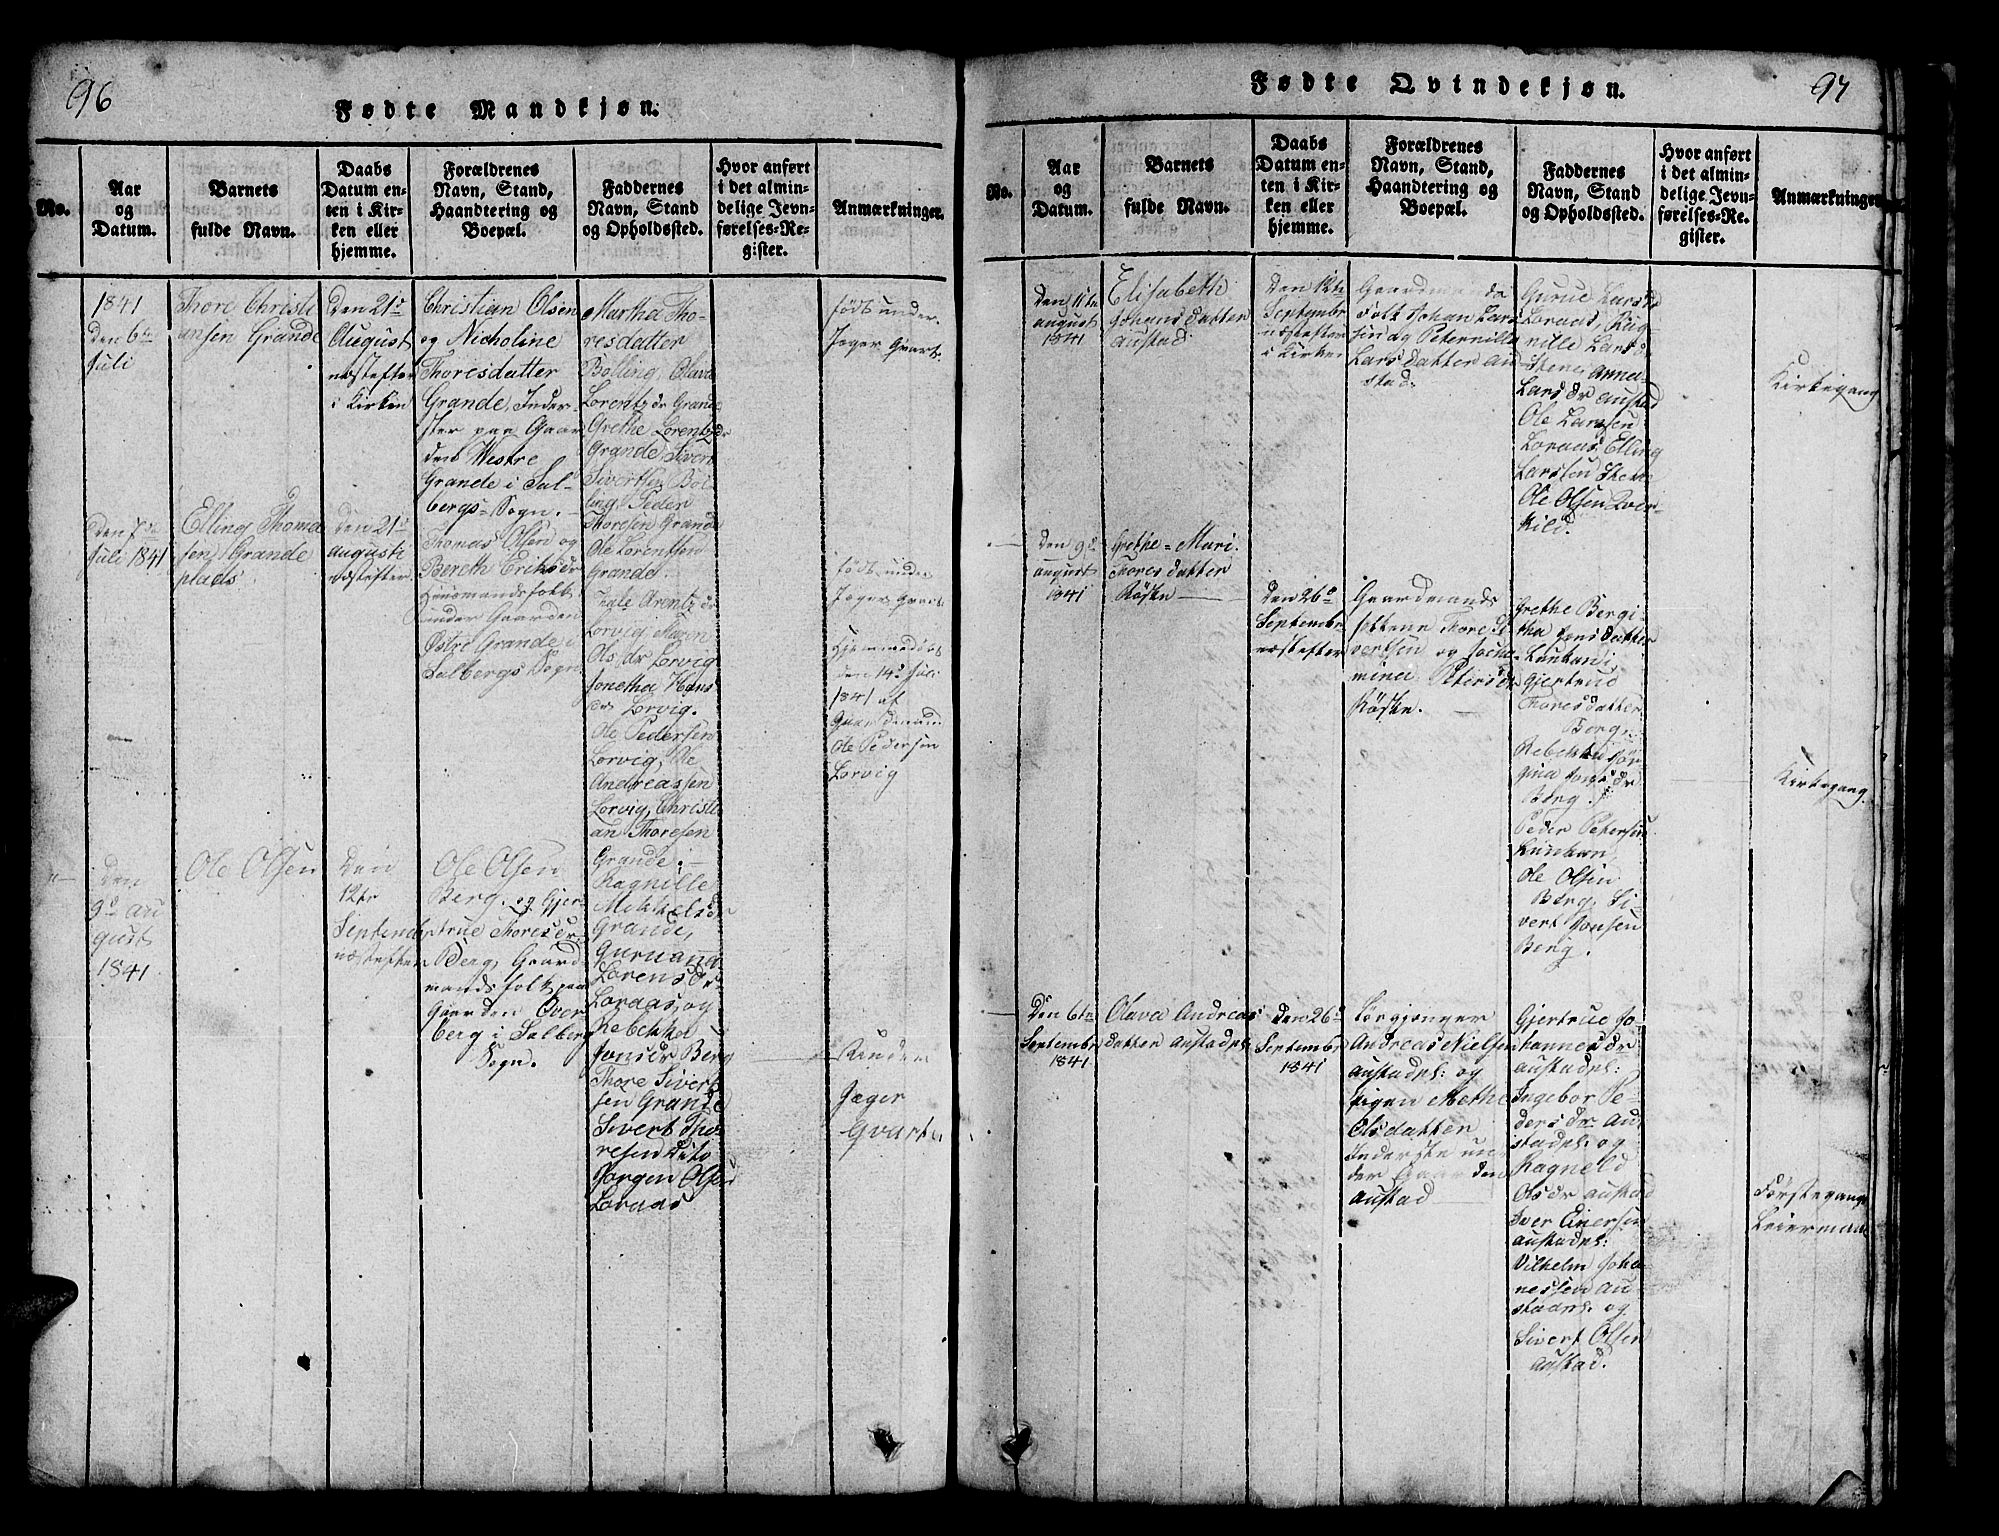 96
Fødte Mandkjøn.
No.
Aar
og
Datum.
Barnets
fulde Navn.
Daabs
Datum en-
ten i Kir-
ken eller
hjemme.
Forældrenes
Navn, Stand,
Haandtering og
Boepæl.
Faddernes
Navn, Stand
og Opholdssted.
Hvor anført
i det almin-
delige Jevn-
førelses-Re-
gister.
Anmærkninger.
1841
den 6te
Juli
Thore Christi
ansen Grande
Den 21de
August
næstefter
i Kirken
Christian Olsen
og Nicholine
Thoresdatter
Grande, Inder-
ster paa Gaar
den Westre
Grande i Sal-
bergs Sogn.
Martha Tho-
resdatter
Bølling, Olava
Lorentz dr Grande
Grethe Lorentz dr
Grande, Sivert
Sivertsen Bøl
ling, Peder
Thoresen Grande
Ole Lorentsen
Grande.
født under
Jæger Qvart.
den 7de
Juli 1841
Elling Thoma
sen Grande
plads.
den 21de
augusti
næstefter
Thomas Olsen og
Bereth Eriks dr
Huusmandsfolk
under Gaarden
Østre Grande i
Salbergs Sogn
Arentz dr
Lorvig, Maren
Ols dr Lorvig
Jonetha Hans
dr Lorvig.
Ole Pedersen
Lorvig, Ole
Andreassen
Lorvig, Christi
an Thoresen
Grande.
født under
Jæger Qvart
Hjemmedøbt
den 14de Juli
1841 af
Gaardmand
Ole Pedersen
Lorvig
Den
9de au
gust
1841
Ole Olsen
Den
12te
Septembr
næstefter
Ole Olsen
Berg og Gjer-
true Thores dr
Berg, Gaard
mandsfolk paa
Gaarden Over
berg i Salberg
Sogn.
Ragnille
Mikkels dr
Grande,
Guruanna
Lorens dr
Loraas, og
Rebekka
Jons dr Berg
Thore Sivert
sen Grande
Sivert Tho-
resen Dito
Jørgen Olsen
Loraas
Under
Jæger
Qvarte
97
Fødte Qvindekjøn.
No.
Aar
og
Datum.
Barnets
fulde Navn.
Daabs
Datum en-
ten i Kir-
ken eller
hjemme.
Forældrenes
Navn, Stand,
Haandtering og
Boepæl.
Faddernes
Navn, Stand
og Opholdssted.
Hvor anført
i det almin-
delige Jevn-
førelses-Re-
gister.
Anmærkninger
Den 11te
august
1841
Elisabeth
Johans datter
austad
Den 12te
Septembr
næstefter
i Kirken
Gaardmands
folk Johan Lars
sen og Peternille
Lars datter au
stad
Gurue Lars dr
Loraas, Rag
nille Lars dr
Stene, anne
Lars dr austad
Ole Larssen
Loraas, Elling
Larssen Stene
Ole Olsen Over
kild.
Kirkegang
Den 9de
august
1841
Grethe Mari
Thores datter
Røske
Den 26de
Septembr
næstefter
Gaardmands
folkene Thore Si
vertsen og Joha
mina Peters dr
Røske.
Grethe Bergi
tha Jens datter
Gjertrud
Thores datter
Berg,
Rebekka Jør
gina Jons dr
Berg.
Peder Petersen
Ole Olsen
Berg, Si
vert Jonsen
Berg.
Kirkegang
Den 6te
Septembr
1841
Olava Andreas
datter austadpl.
Den 26de
Septembr
1841
Andreas Nielsen
austadpl: og
pigen Methe
Olsdatter
Inderste un
der Gaarden
austad
Gjertrue Jo
hannes dr
austadpl:
Ingebor Pe
ders dr au
stadpl: og
Ragneld
Ols dr austad
Iver Einersen
austadpl:
Vilhelm Joha
nessen au
stadpl. og
Sivert Olsen
austad.
Førstegangs
Leiermaal